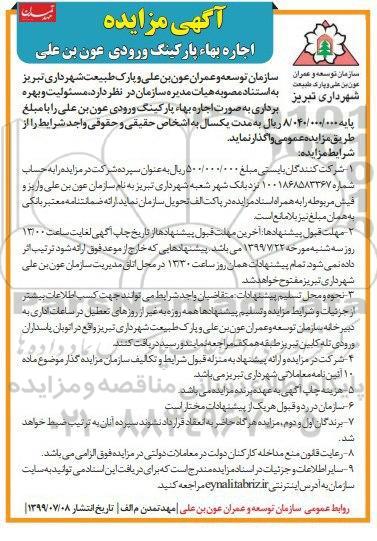 مهد تمدن
آگهی مزایده
اجاره بهاء پارکینگ ورودی عون بن علی
سازمان توسعه و عمران
عون بن علی و پارک طبیعت
شهرداری تبریز
سازمان توسعه و عمران عون بن علی و پارک طبیعت شهرداری تبریز
به استناد مصوبه هیات مدیره سازمان در نظر دارد، مسئولیت و بهره
برداری به صورت اجاره بهاء پارکینگ ورودی عون بن علی را با مبلغ
پایه ۸/۰۴۰/۰۰۰/۰۰۰ ریال به مدت یکسال به اشخاص حقیقی و حقوقی واجد شرایط را از
طریق مزایده عمومی واگذار نماید.
شرایط مزایده:
۱- شرکت کنندگان بایستی مبلغ ۵۰۰/۰۰۰/۰۰۰ ریال به عنوان سپرده شرکت در مزایده را به حساب
شماره ۱۰۰۱۸۶۸۵۸۳۳۶۷ نزد بانک شهر شعبه شهرداری تبریز به نام سازمان عون بن علی واریز و
فیش مربوطه را به همراه اسناد مزایده در پاکت الف تحویل سازمان نماید. ارائه ضمانتنامه معتبر بانکی
به همان مبلغ نیز بلامانع است.
۲- مهلت قبول پیشنهادها: آخرین مهلت قبول پیشنهادها از تاریخ چاپ آگهی لغایت ساعت ۱۲/۰۰
روز سه شنبه مورخه ۱۳۹۹/۷/۲۲ می باشد. پیشنهادهایی که خارج از موعد فوق ارائه شود ترتیب اثر
داده نمی شود. تمام پیشنهادات همان روز ساعت ۱۳/۳۰ در محل اتاق مدیریت سازمان عون بن علی
شهرداری تبریز مفتوح خواهد شد.
۳- نحوه و محل تسلیم پیشنهادات: متقاضیان واجد شرایط می توانند جهت کسب اطلاعات بیشتر
از جزئیات و شرایط مزایده و تسلیم پیشنهادها همه روزه به غیر از روزهای تعطیل در ساعات اداری به
دبیرخانه سازمان توسعه و عمران عون بن علی و پارک طبیعت شهرداری تبریز واقع در اتوبان پاسداران
ورودی تله کابین تبریز طبقه همکف مراجعه نمایند و رسید دریافت کنند.
۴- شرکت در مزایده و ارائه پیشنهاد به منزله قبول شرایط و تکالیف سازمان مزایده گذار موضوع ماده
۱۰ آئین نامه معاملاتی شهرداری تبریز می باشد.
۵- هزینه چاپ آگهی به عهده برنده مزایده می باشد
۶- سازمان در رد و قبول هر یک از پیشنهادات مختار است
۷- برندگان اول و دوم، مزایده هر گاه حاضر به انعقاد قرارداد نشوند سپرده آنان به ترتیب ضبط خواهد
شد.
۸- رعایت قانون منع مداخله کارکنان دولت در معاملات دولتی در مزایده فوق الزامی می باشد.
۹- سایر اطلاعات و جزئیات در اسناد مزایده مندرج است که برای دریافت این اسناد می توانید به سایت
سازمان به آدرس اینترنتی eynalitabriz.ir مراجعه کنید.
روابط عمومی سازمان توسعه و عمران عون بن علی | مهد تمدن م الف | تاریخ انتشار ۱۳۹۹/۰۷/۰۸